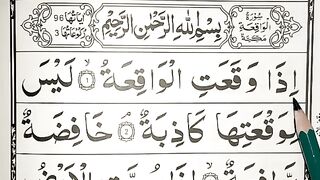 سُورَةُ الْوَاقِعَةِ مَكِّيَّةٌ
بِسْمِ اللّٰهِ الرَّحْمٰنِ الرَّحِيْمِ
اٰيَاتُهَا 96
رُكُوْعَاتُهَا 3
اِذَا وَقَعَتِ الْوَاقِعَةُ ۙ ﴿1﴾ لَيْسَ
لِوَقْعَتِهَا كَاذِبَةٌ ۘ ﴿2﴾ خَافِضَةٌ